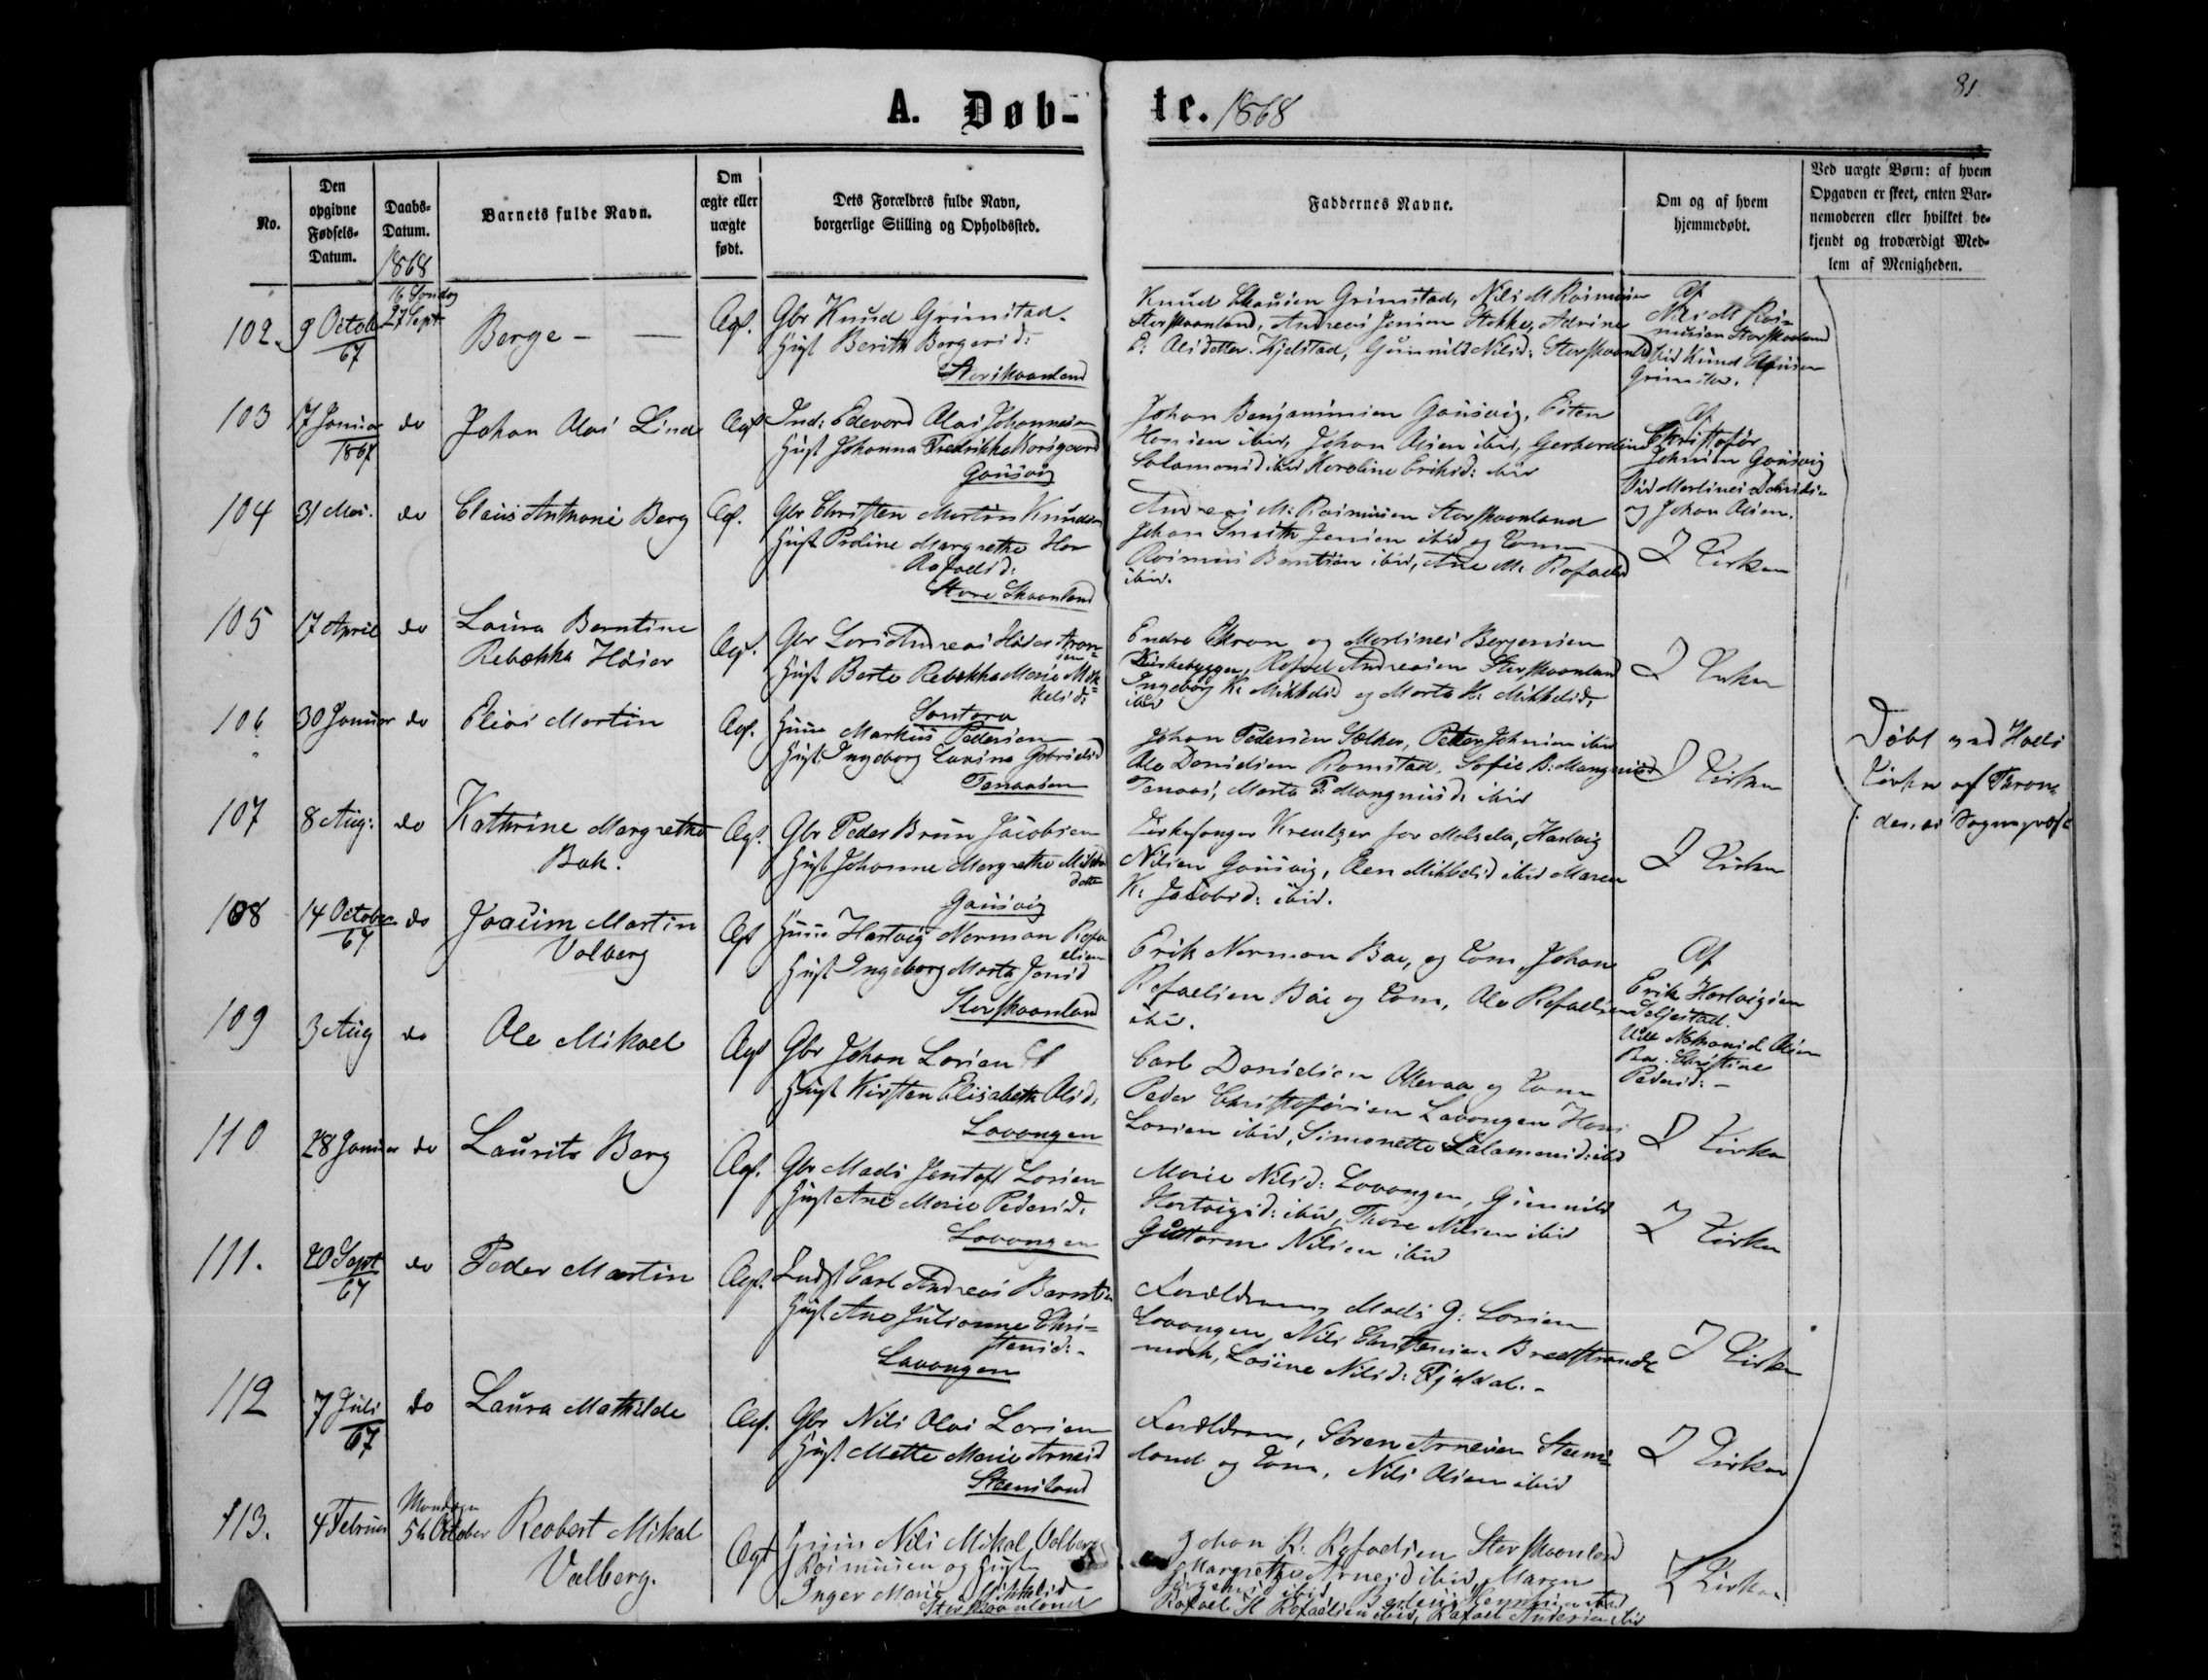 81
A. Døb-
te. 1868
No.
Den opgivne Fødsels-Datum.
Daabs-Datum.
1868
Barnets fulde Navn.
Om ægte eller uægte født.
Dets Forældres fulde Navn, borgerlige Stilling og Opholdssted.
Faddernes Navne.
Om og af hvem hjemmedøbt.
Ved uægte Børn: af hvem Opgaven er skeet, enten Barnemoderen eller hvilket bekjendt og troværdigt Medlem af Menigheden.
102. 9 Octob 67
16 Søndag
27 Sept
Berge
Ægt.
Gbr Knud Grimstad.
Hust Berith Bergersd:
Storskaanland
Grimstad, Nils M Rasmusen
Storskaanland, Andreas Jensen Stokke,
Kjelstad, Gunnild Nilsd: Storskaanld
Af
Nils M Rasmusen Storskaanland
103 17 Januar 1867 do
Johan Olai Lind
Ægt
Ind: Edevard Olai Johannesen
Hust Johanna Fredrikke Korsgaard
Gausvig
Johan Benjaminsen Gausvig,
Hansen ibid, Johan Olsen ibid,
Salamonsd ibid Karoline Eriksd: ibid
Af
Christoffer
Johnsen Gausvig
og Johan Olsen.
104 31 Mai. do
Claus Anthoni Berg
Ægt.
Gbr Christen Martin Knudsen
Hust Preline Margrethe
Rafaelsd:
Store Skaanland
Andreas M: Rasmusen Storskaanland
Johan Smith Jensen ibid og Kone
Rasmus Berntsen ibid, Ane M. Rafaelsd
ibid.
I Kirken
105 17 April do
Laura Berntine
Rebekka Høier
Ægt.
Gbr Lars Andreas Høier Aronsen
Hust Berte Rebekka Marie Mikkelsd:
Santora
Endre Aron og Martines Bergersen
Kirkebyggen, Rafael Andreasen Storskaanland
Ingeborg K. Mikkelsd og Marta H. Mikkelsd,
ibid
I Kirken
106 30 Januar do
Elias Martin
Ægt.
Huus Markus Pedersen
Hust: Ingeborg Lavina Gabrielsd
Tenaasen
Johan Pedersen Sælker, Petter Johnsen ibid
Ole Danielsen Ramstad, Sofie B: Mangnusd
Tenaas, Marta P: Mangnusd: ibid
I Kirken
107 8 Aug: do
Kathrine Margrethe
Bak.
Ægt.
Gbr Peder Brun Jacobsen
Hust Johanne Margrethe Mikkel
datter
Gausvig
Kirkesanger Kreutzer for Malselv, Hartvig
Nilsen Gausvig, Elen Mikkelsd ibid Maren
K: Jacobsd: ibid.
I Kirken
108 14 October 67 do
Joacim Martin
Valberg
Ægt
Huus Hartvig Norman Rafaelsen
Hust Ingeborg Marta Jonsd
Storskaanland
Erik Norman Bae, og Kone, Johan
Rafaelsen Bae og Kone, Ole Rafaelsen
ibid.
Af
Erik Hartvigsen
Seljestad.
Christine
Pedersd: -
109 3 Aug do
Ole Mikael
Ægt
Gbr Johan Larsen
Hust Kirsten Elisabeth Olsd:
Lavangen
Carl Danielsen og Kone
Peder Christoffersen Lavangen Hans
Larsen ibid, Simonette Salamonsd: ibid
I Kirken
110 28 Januar do
Laurits Berg
Ægt.
Gbr Mads Jentoft Larsen
Hust Ane Marie Pedersd:
Lavangen
Marie Nilsd: Lavangen, Gunnild
Hartvigsd: ibid, Thore Nilsen ibid
Guttorm Nilsen ibid
I Kirken
111. 20 Sept 67 do
Peder Martin
Ægt.
Indst Carl Andreas Berntsen
Hust Ane Julianne Christensd: -
Lavangen
Forældrene, Mads J: Larsen
Lavangen, Nils Christensen Bredstrand
mark, Lasine Nilsd: Fjeldal. -
I Kirken
112 7 Juli 67 do
Laura Mathilde
Ægt.
Gbr Nils Olai Larsen
Hust Mette Marie Arnesd
Steensland
Forældrene, Søren Arnesen Steensland
og Kone, Nils Olsen ibid
I Kirken
113. 4 Februar
Mandagen
5te October
Reobert Mikal
Valberg.
Ægt
Huus Nils Mikal Valberg
Rasmusen og Hust
Inger Marie Mikkelsd
Storskaanland
Johan R. Rafaelsen Storskaanland
Margrethe Arnesd ibid, Maren
Jørgensd ibid
Rafael H Rafaelsen ibid, Rafael Andersen ibid
I Kirken
Døbt ved Hols
Kirke af Trondenes Sogneprest